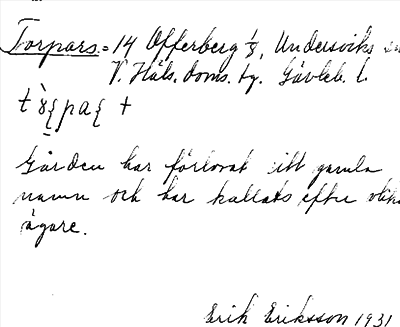 Torpars. = 14 Offerberg 1/8, Undersviks
V. Häls. doms. tg. Gävleb. l.
Gården har förlorat sitt gamla
namn och har kallats efter olika
ägare.
Erik Eriksson 1931